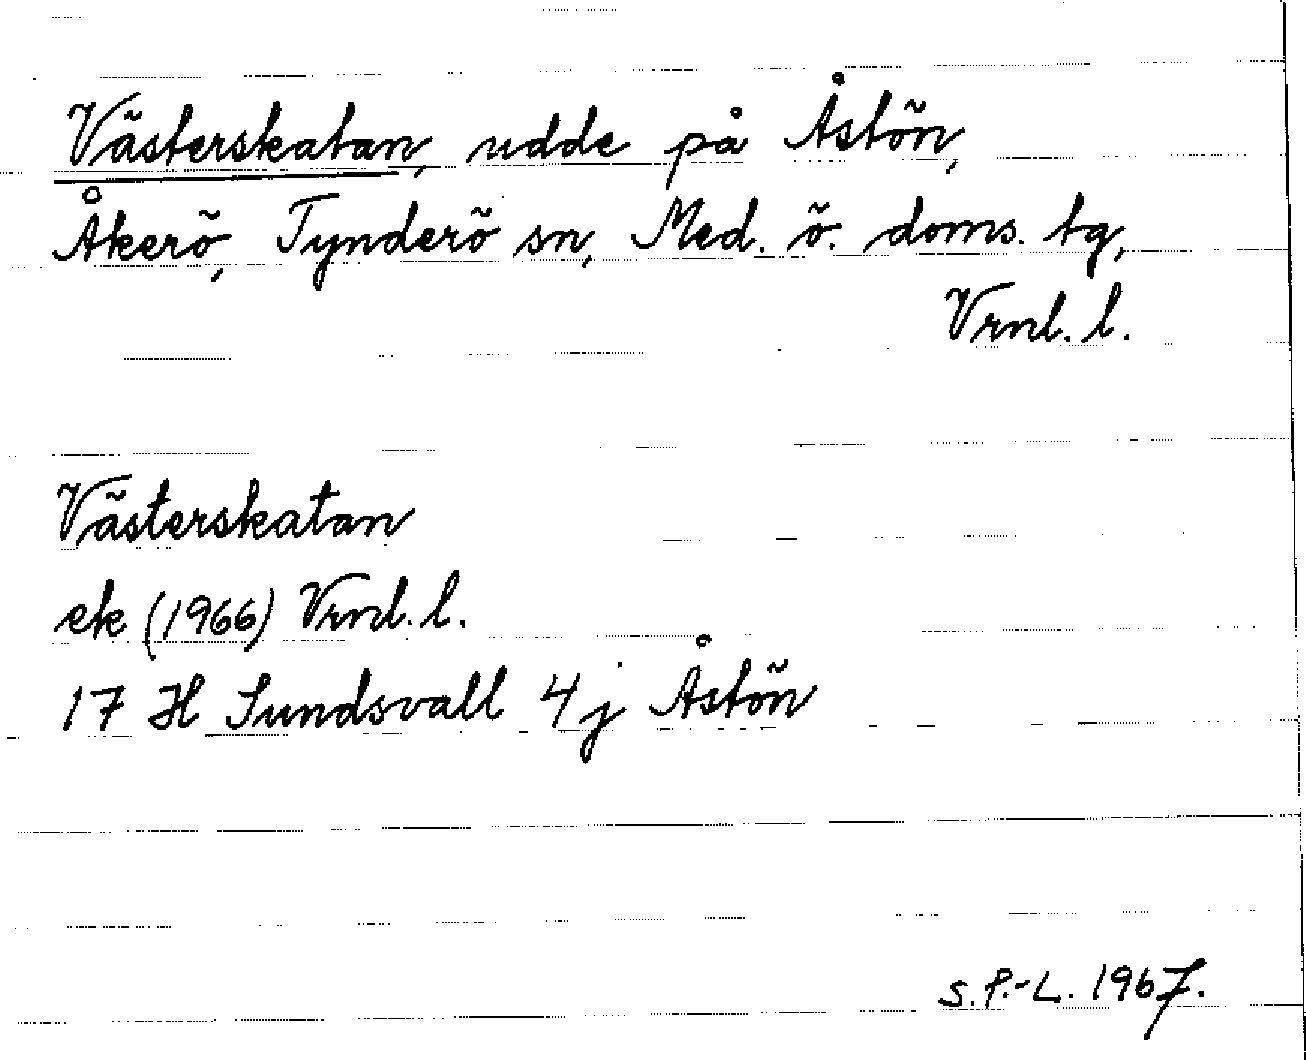 Västerskatan, udde på Åstön,
Åkerö, Tynderö sn, Med. ö. doms. tg,
Vrnl. l.
Västerskatan
ek (1966) Vrnl. l.
17 H Sundsvall 4j Åstön
S. P.-L. 1967.